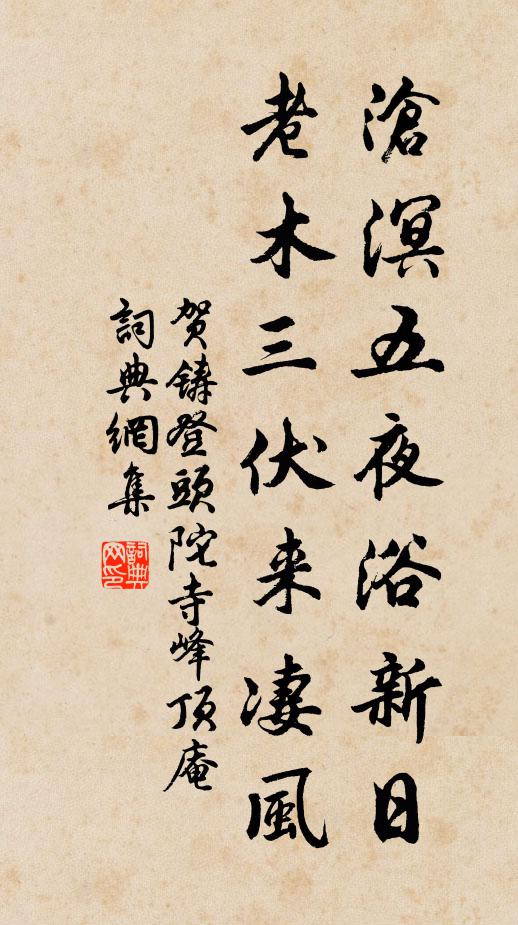 滄溟五夜浴新日
老木三伏来淒風
贺鑄登頭陀寺峰頂庵
詞典網集
詞典网印